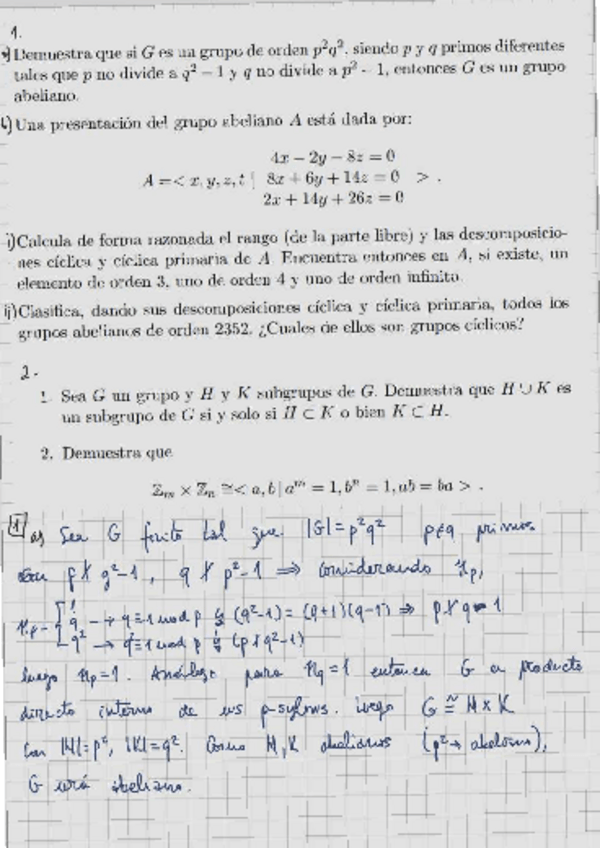 1.
a) Demuestra que si G es un grupo de orden p²q², siendo p y q primos diferentes
tales que p no divide a q² − 1 y q no divide a p² − 1, entonces G es un grupo
abeliano.
b) Una presentación del grupo abeliano A está dada por:
4x − 2y − 8z = 0
A =< x, y, z, t | 8x + 6y + 14z = 0 > .
2x + 14y + 26z = 0
i) Calcula de forma razonada el rango (de la parte libre) y las descomposicio-
nes cíclica y cíclica primaria de A. Encuentra entonces en A, si existe, un
elemento de orden 3, uno de orden 4 y uno de orden infinito.
ii) Clasifica, dando sus descomposiciones cíclica y cíclica primaria, todos los
grupos abelianos de orden 2352. ¿Cuales de ellos son grupos cíclicos?
2.-
1. Sea G un grupo y H y K subgrupos de G. Demuestra que H ∪ K es
un subgrupo de G si y solo si H ⊂ K o bien K ⊂ H.
2. Demuestra que
ℤm × ℤn ≅< a, b | aᵐ = 1, bⁿ = 1, ab = ba > .
1 a) Sea G finito tal que |G| = p²q² p≠q primos
p ∤ q²-1, q ∤ p²-1 ⇒ considerando np,
np = 1
q → q ≡ 1 mod p (q²-1) = (q+1)(q-1) ⇒ p ∤ q-1
q² → q² ≡ 1 mod p (p ∤ q²-1)
luego np=1. Análogo para nq=1 entonces G es producto
directo interno de sus p-sylows. luego G ≅ H × K
con |H|=p², |K|=q². Como H, K abelianos (p² → abeliano),
G será abeliano.